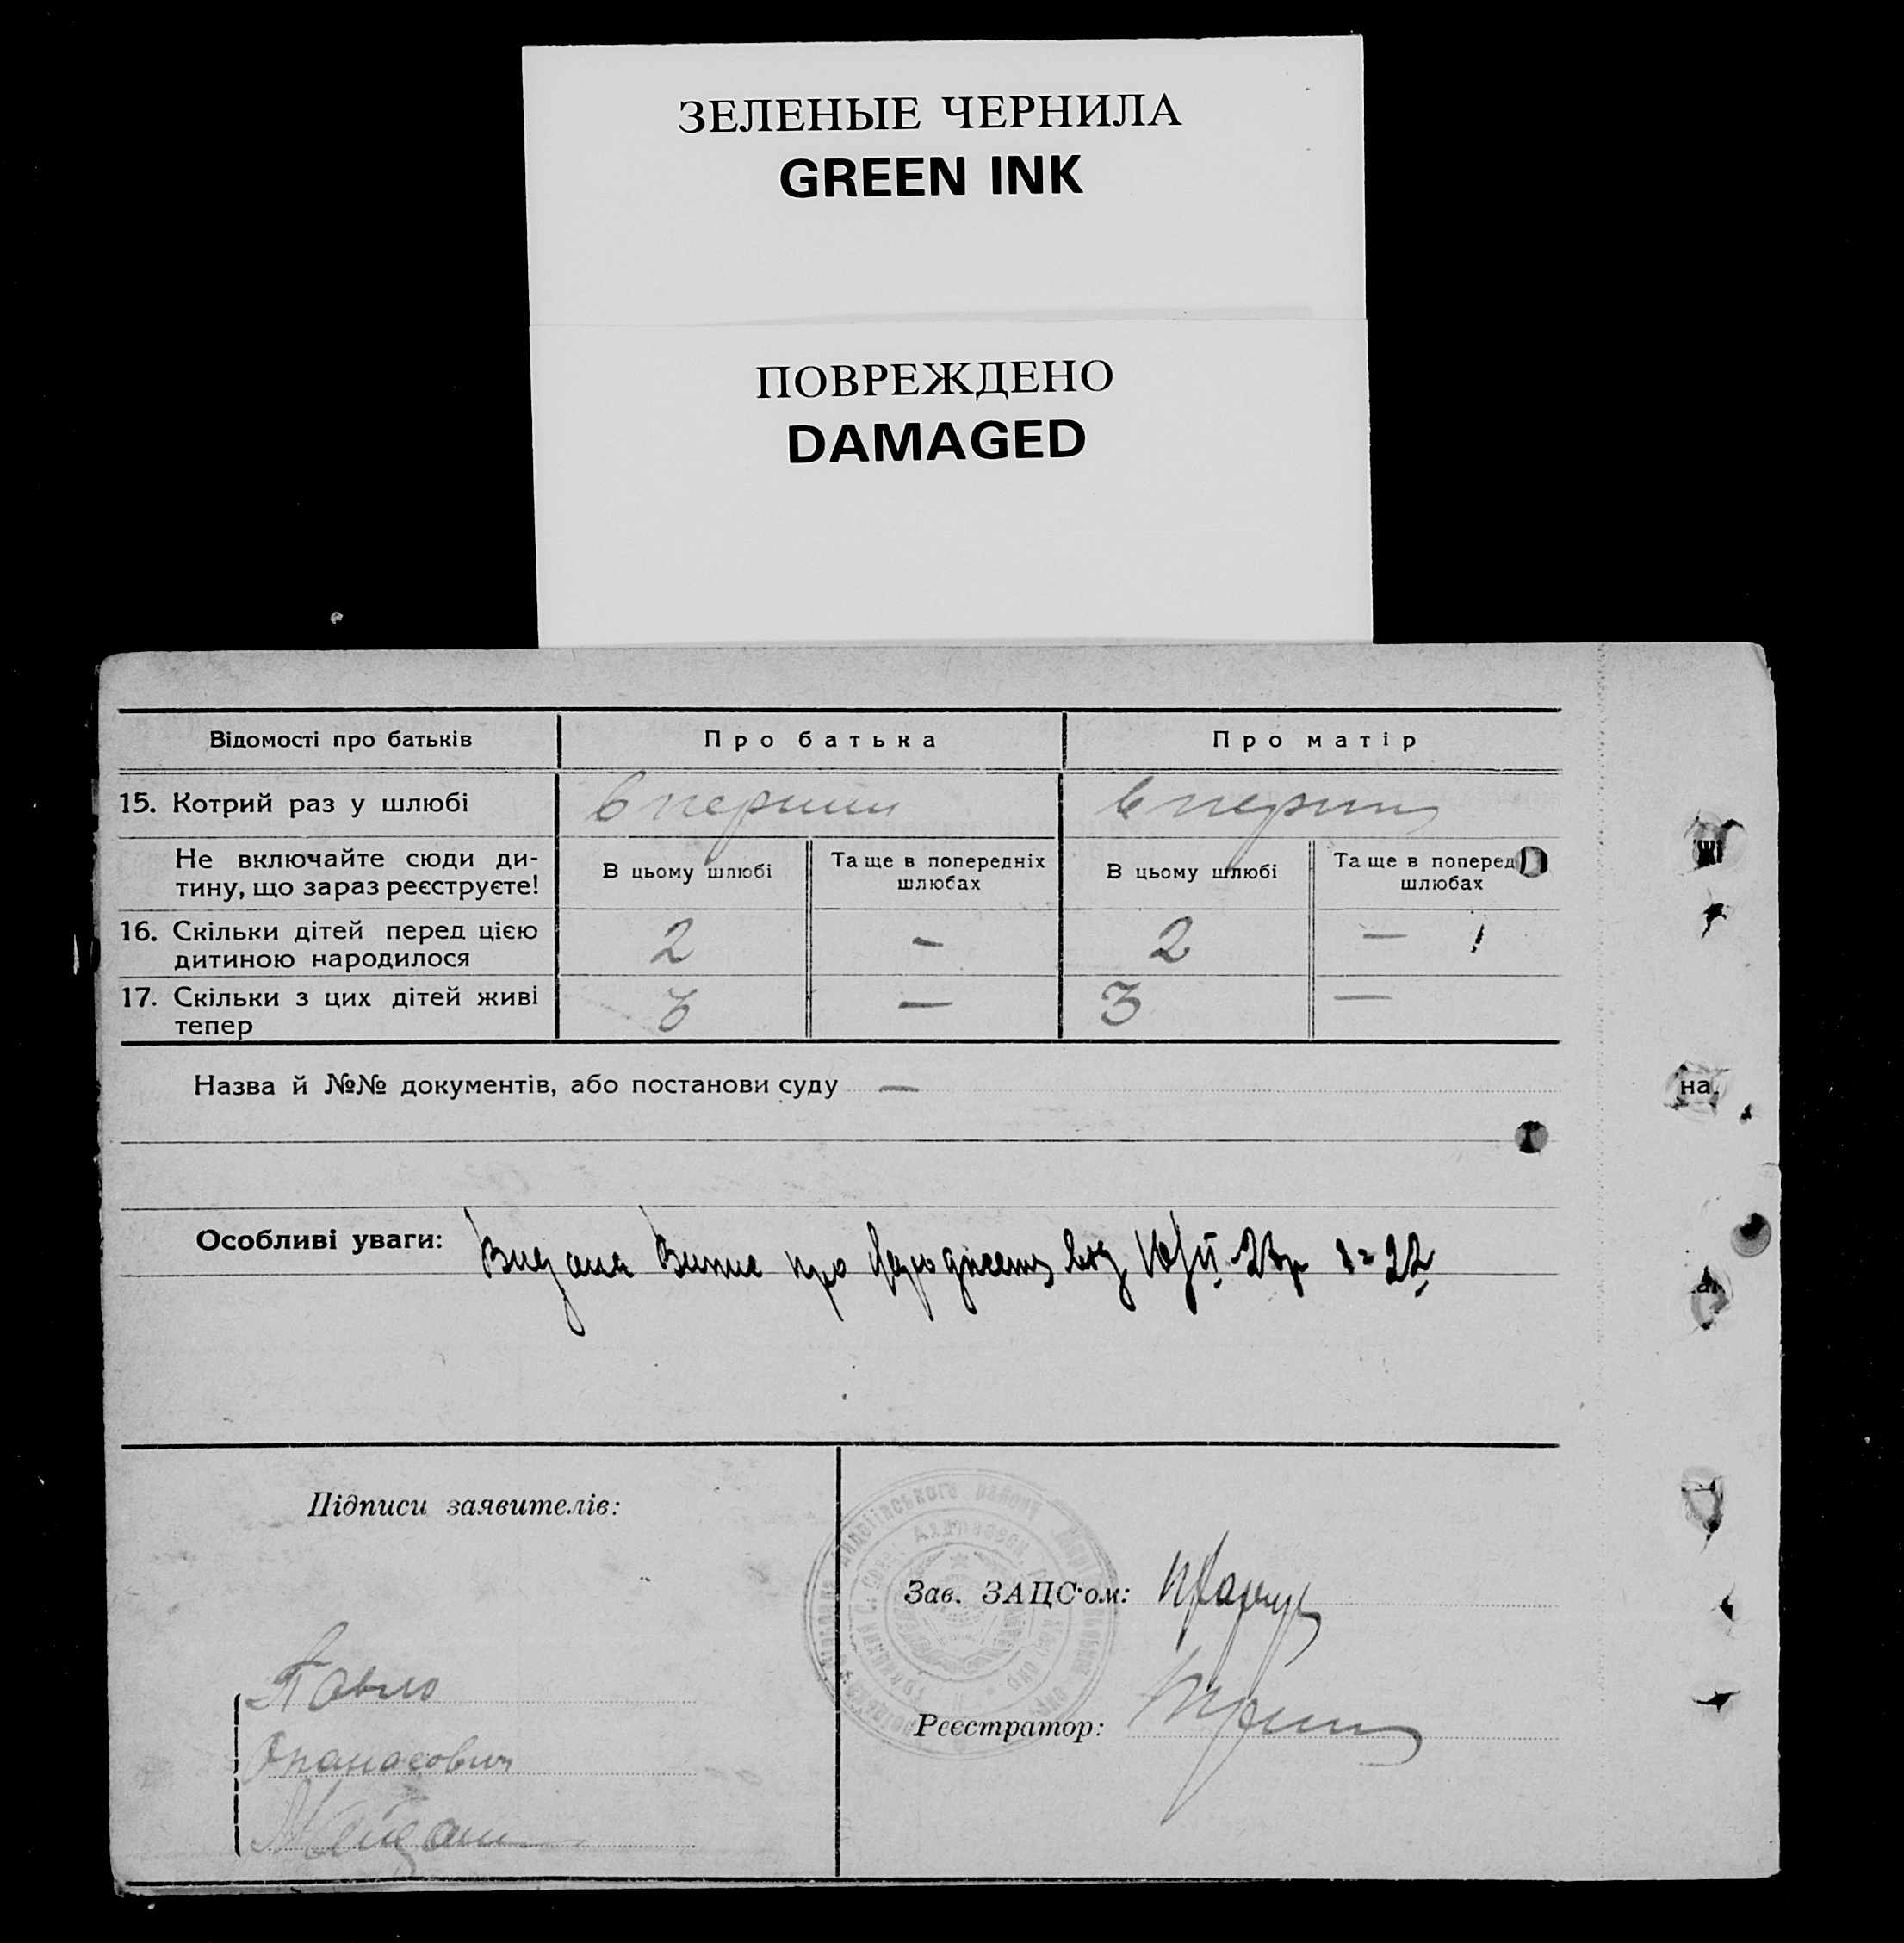 ЗЕЛЕНЫЕ ЧЕРНИЛА
GREEN INK
ПОВРЕЖДЕНО
DAMAGED
Відомості про батьків
Про батька
Про матір
15. Котрий раз у шлюбі
вперший
вперший
Не включайте сюди ди-
тину, що зараз реєструєте!
В цьому шлюбі
Та ще в попередніх
шлюбах
В цьому шлюбі
Та ще в поперед
шлюбах
16. Скільки дітей перед цією
дитиною народилося
2
—
2
—
17. Скільки з цих дітей живі
тепер
3
—
3
—
Назва й №№ документів, або постанови суду —
на
Особливі уваги: Видана Випис про
Підписи заявителів:
Зав. ЗАЦС'ом:
Павло
Реєстратор:
Опанасович